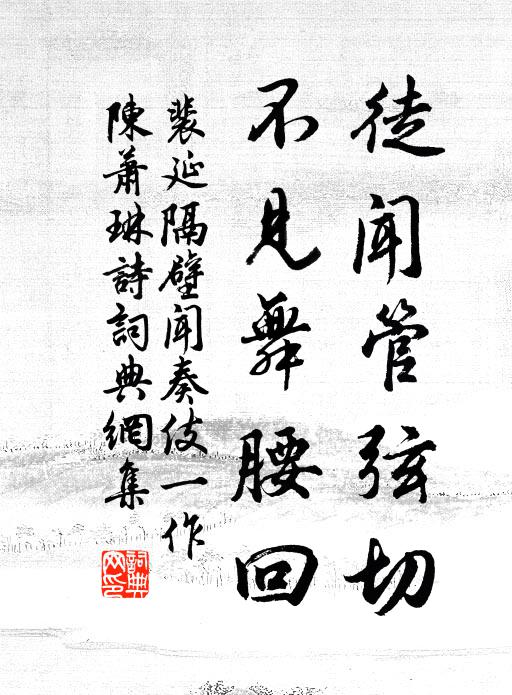 徒闻管弦切
不见舞腰回
裴延隔壁闻奏伎一作
陳萧琳詩詞典網集
詞典網印